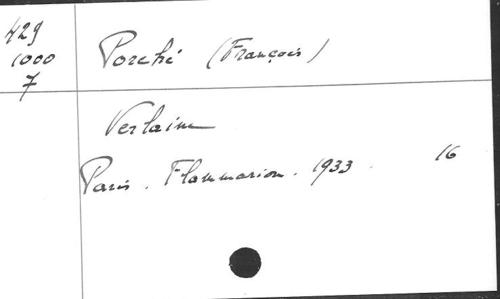 429
1000
7
Porché (François)
Verlaine
Paris. Flammarion. 1933. 16